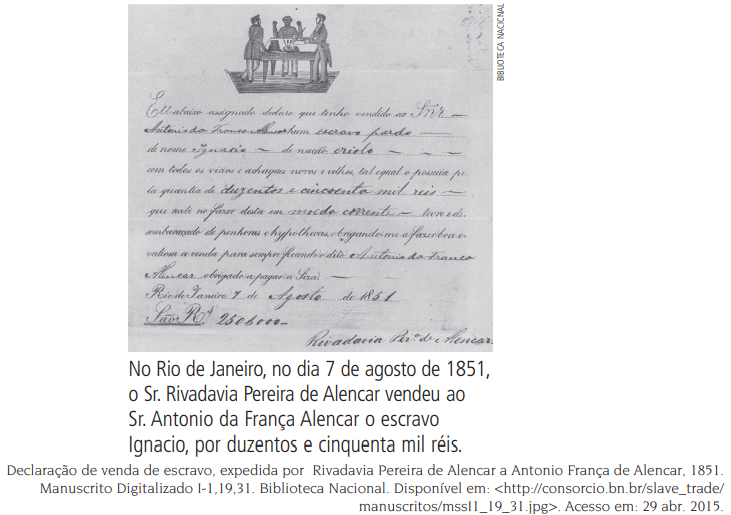 BIBLIOTECA NACIONAL
Eu abaixo assignado declaro que tenho vendido ao Snr
Antonio da França Alencar hum escravo pardo
de nome Ignacio de nação criolo
com todos os vicios e achaques novos e velhos, tal equal o possuia pe
la quantia de duzentos e cincoenta mil reis
que recebi no fazer desta em moeda corrente livre e de
sembaraçado de penhoras e hypothecas, obrigando-me a fazer boa e
valiosa a venda para sempre ficando o dito Antonio da Franca
Alencar obrigado a pagar a Siza.
Rio de Janeiro 7 de Agosto de 1851
São Rs 250$000
Rivadavia Per.a de Alencar.
No Rio de Janeiro, no dia 7 de agosto de 1851,
o Sr. Rivadavia Pereira de Alencar vendeu ao
Sr. Antonio da França Alencar o escravo
Ignacio, por duzentos e cinquenta mil réis.
Declaração de venda de escravo, expedida por Rivadavia Pereira de Alencar a Antonio França de Alencar, 1851.
Manuscrito Digitalizado I-1,19,31. Biblioteca Nacional. Disponível em: <http://consorcio.bn.br/slave_trade/
manuscritos/mssI1_19_31.jpg>. Acesso em: 29 abr. 2015.